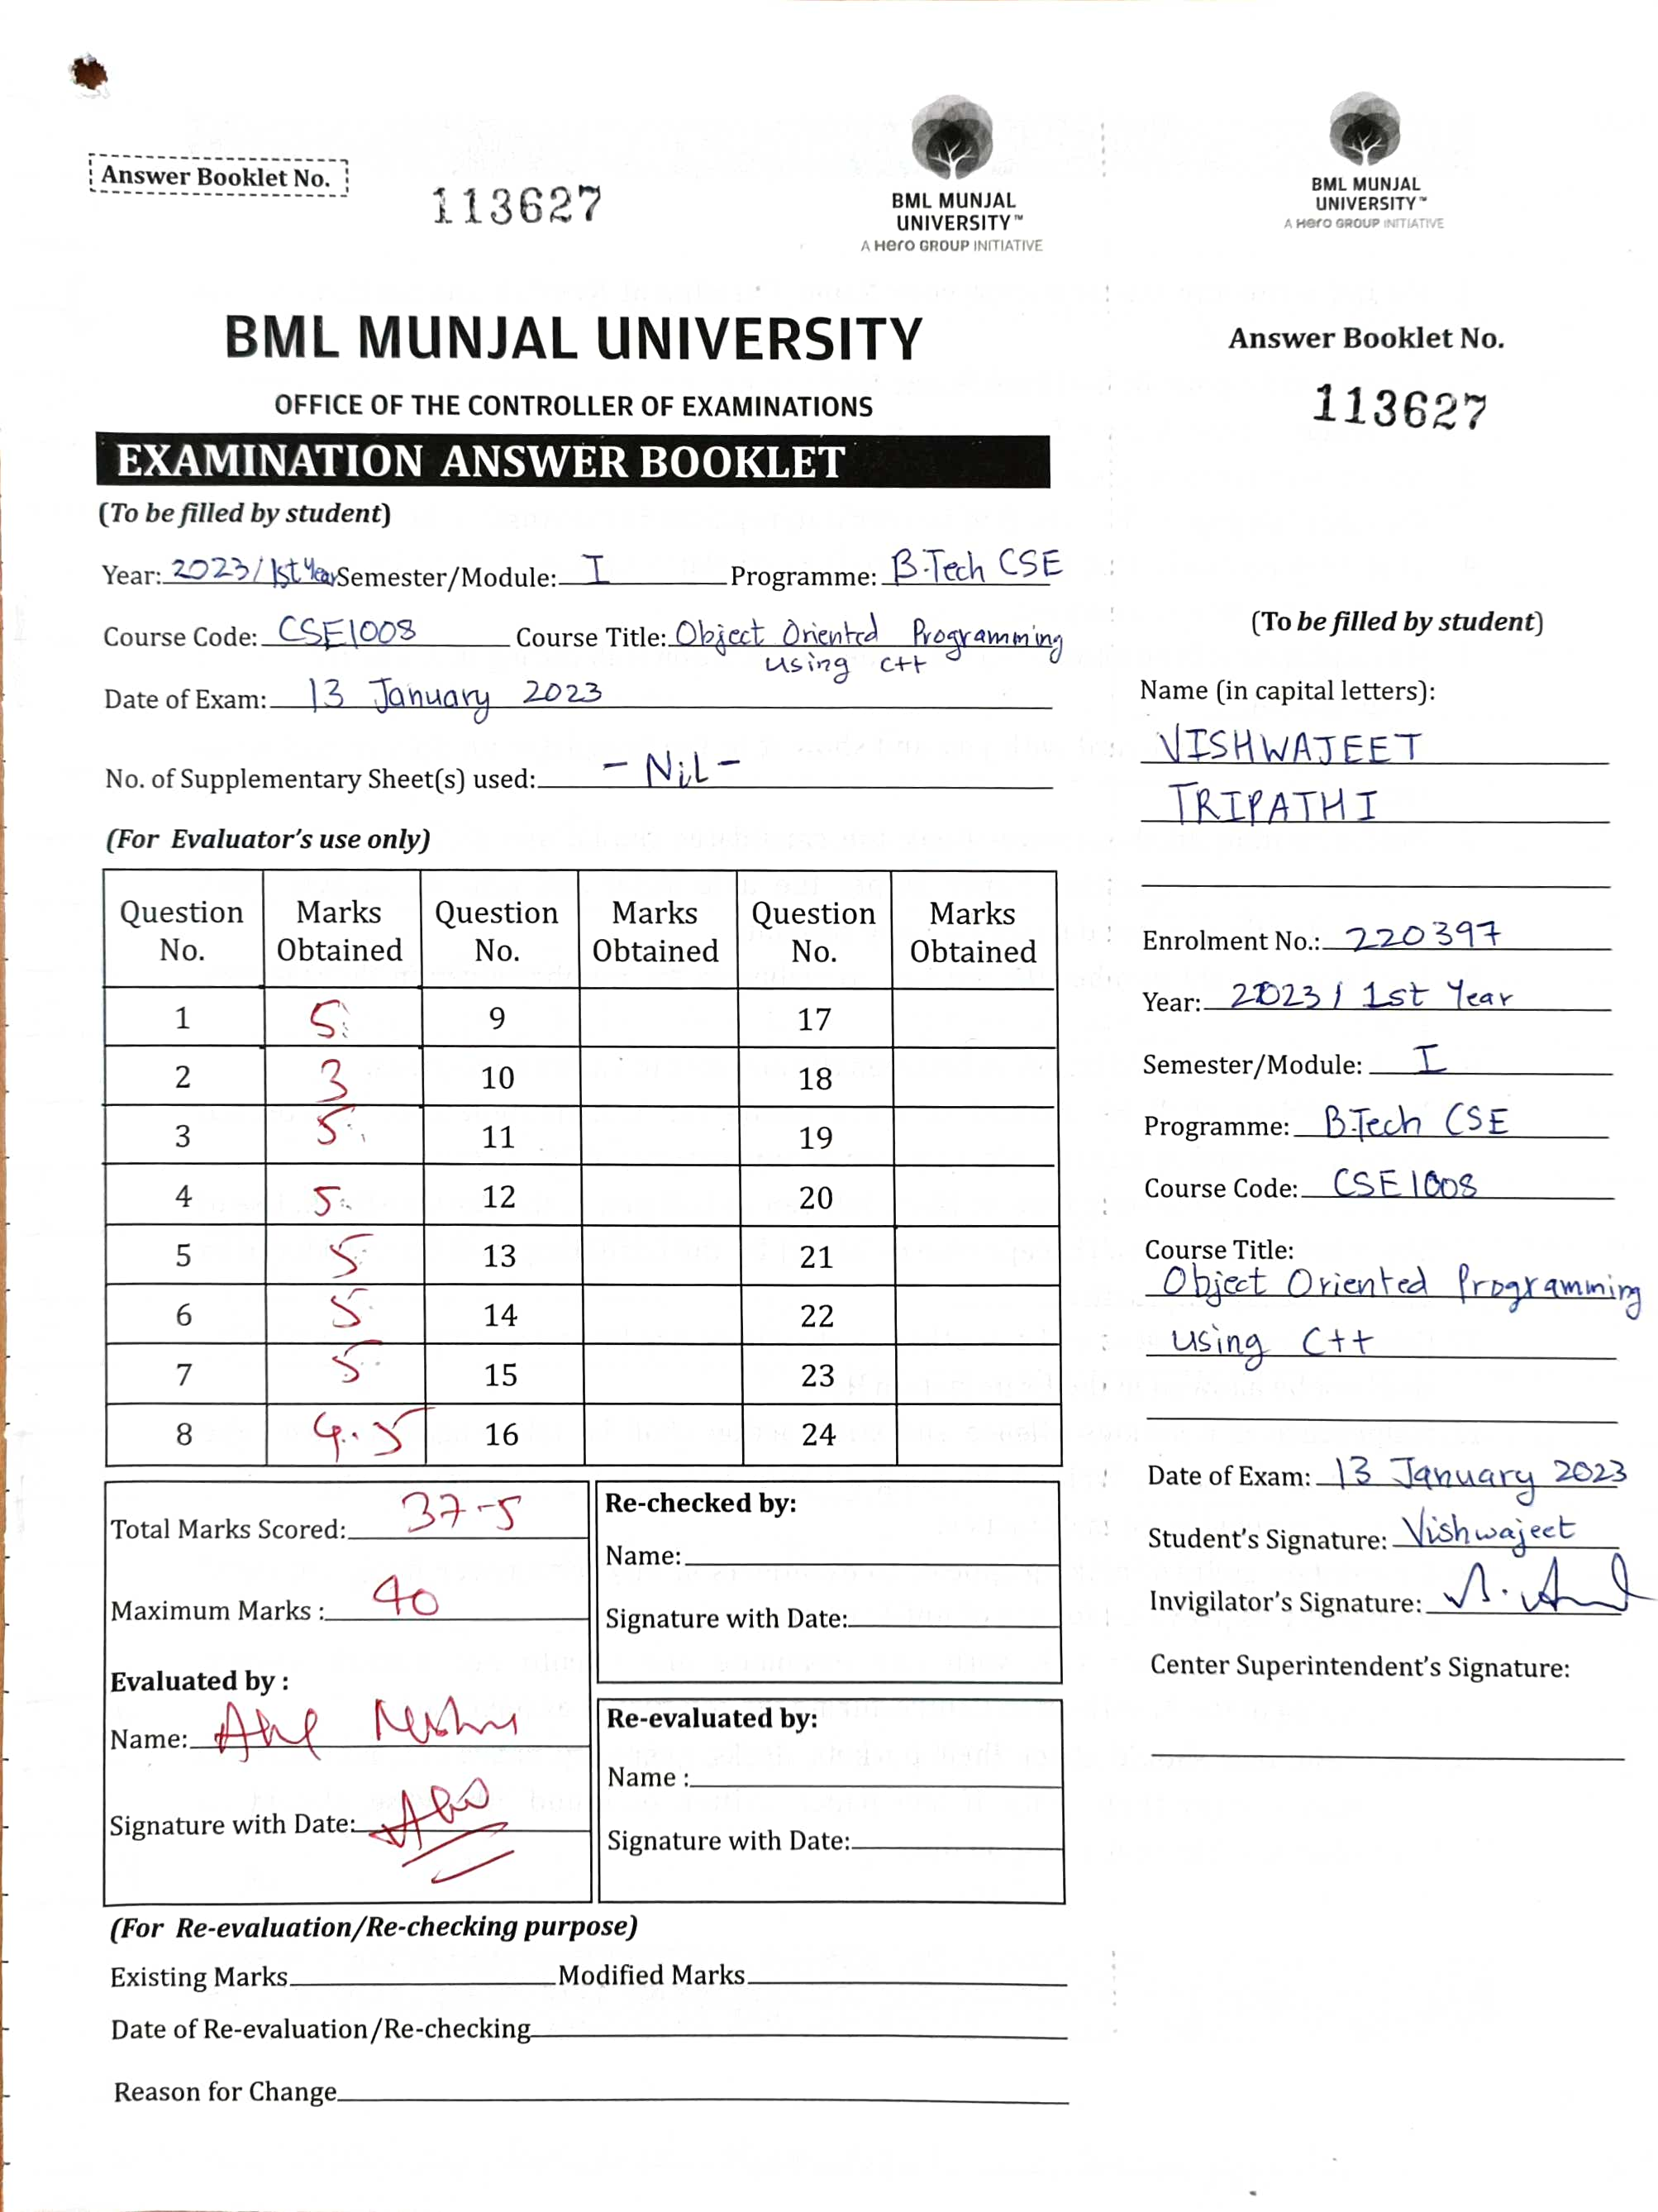 Answer Booklet No.
113627
BML MUNJAL
UNIVERSITY™
A Hero GROUP INITIATIVE
BML MUNJAL UNIVERSITY
OFFICE OF THE CONTROLLER OF EXAMINATIONS
EXAMINATION ANSWER BOOKLET
(To be filled by student)
Year: 2023/1st Year Semester/Module: I Programme: B.Tech CSE
Course Code: CSE1008 Course Title: Object Oriented Programming
using C++
Date of Exam: 13 January 2023
No. of Supplementary Sheet(s) used: - NiL -
(For Evaluator's use only)
Question No. Marks Obtained Question No. Marks Obtained Question No. Marks Obtained
1 5 9 17
2 3 10 18
3 5 11 19
4 5 12 20
5 5 13 21
6 5 14 22
7 5 15 23
8 4.5 16 24
Total Marks Scored: 37-5
Maximum Marks : 40
Evaluated by :
Name:
Signature with Date:
Re-checked by:
Name:
Signature with Date:
Re-evaluated by:
Name :
Signature with Date:
(For Re-evaluation/Re-checking purpose)
Existing Marks Modified Marks
Date of Re-evaluation/Re-checking
Reason for Change
BML MUNJAL
UNIVERSITY™
A Hero GROUP INITIATIVE
Answer Booklet No.
113627
(To be filled by student)
Name (in capital letters):
VISHWAJEET
TRIPATHI
Enrolment No.: 220397
Year: 2023/ 1st Year
Semester/Module: I
Programme: B.Tech CSE
Course Code: CSE1008
Course Title:
Object Oriented Programming
using C++
Date of Exam: 13 January 2023
Student's Signature: Vishwajeet
Invigilator's Signature:
Center Superintendent's Signature: